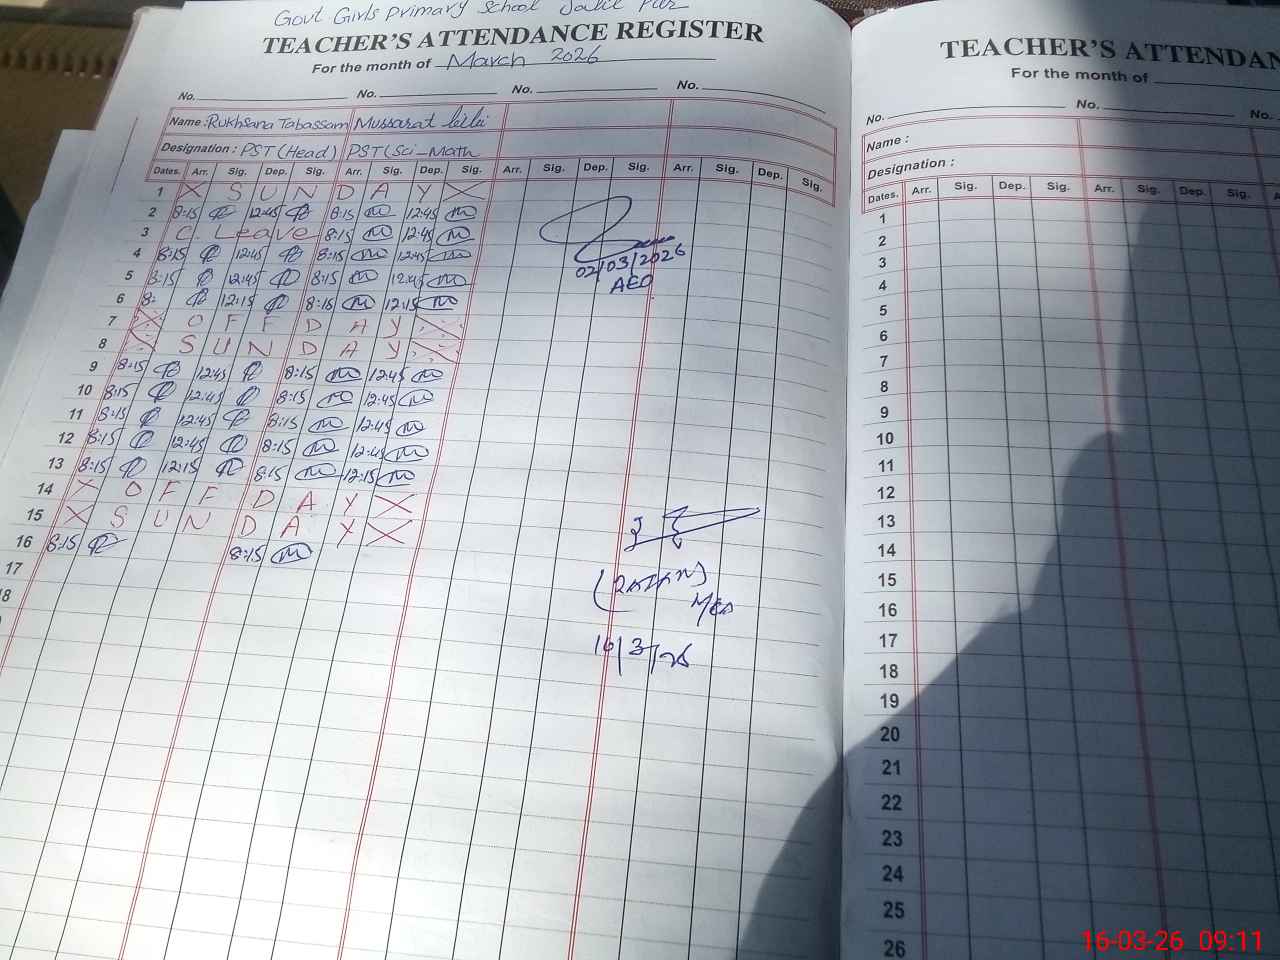 Govt Girls Primary School Jalil Pur
TEACHER'S ATTENDANCE REGISTER
For the month of March 2026
No. No. No. No.
Name : Rukhsana Tabassam Mussarat
Designation : PST (Head) PST (Sci-Math
Dates. Arr. Sig. Dep. Sig. Arr. Sig. Dep. Sig. Arr. Sig. Dep. Sig. Arr. Sig. Dep. Sig.
1 X S U N D A Y X
2 8:15 12:45 8:15 12:45
3 C. Leave 8:15 12:45
4 8:15 12:45 8:15 12:45
5 8:15 12:45 8:15 12:45
6 8: 12:15 8:15 12:15
7 X O F F D A Y X
8 X S U N D A Y X
9 8:15 12:45 8:15 12:45
10 8:15 12:45 8:15 12:45
11 8:15 12:45 8:15 12:45
12 8:15 12:45 8:15 12:45
13 8:15 12:15 8:15 12:15
14 X O F F D A Y X
15 X S U N D A Y X
16 8:15 8:15
17
18
02/03/2026
AEO
16/3/26
TEACHER'S ATTENDAN
For the month of
No. No. No.
Name :
Designation :
Dates. Arr. Sig. Dep. Sig. Arr. Sig. Dep. Sig. A
1
2
3
4
5
6
7
8
9
10
11
12
13
14
15
16
17
18
19
20
21
22
23
24
25
26
16-03-26 09:11